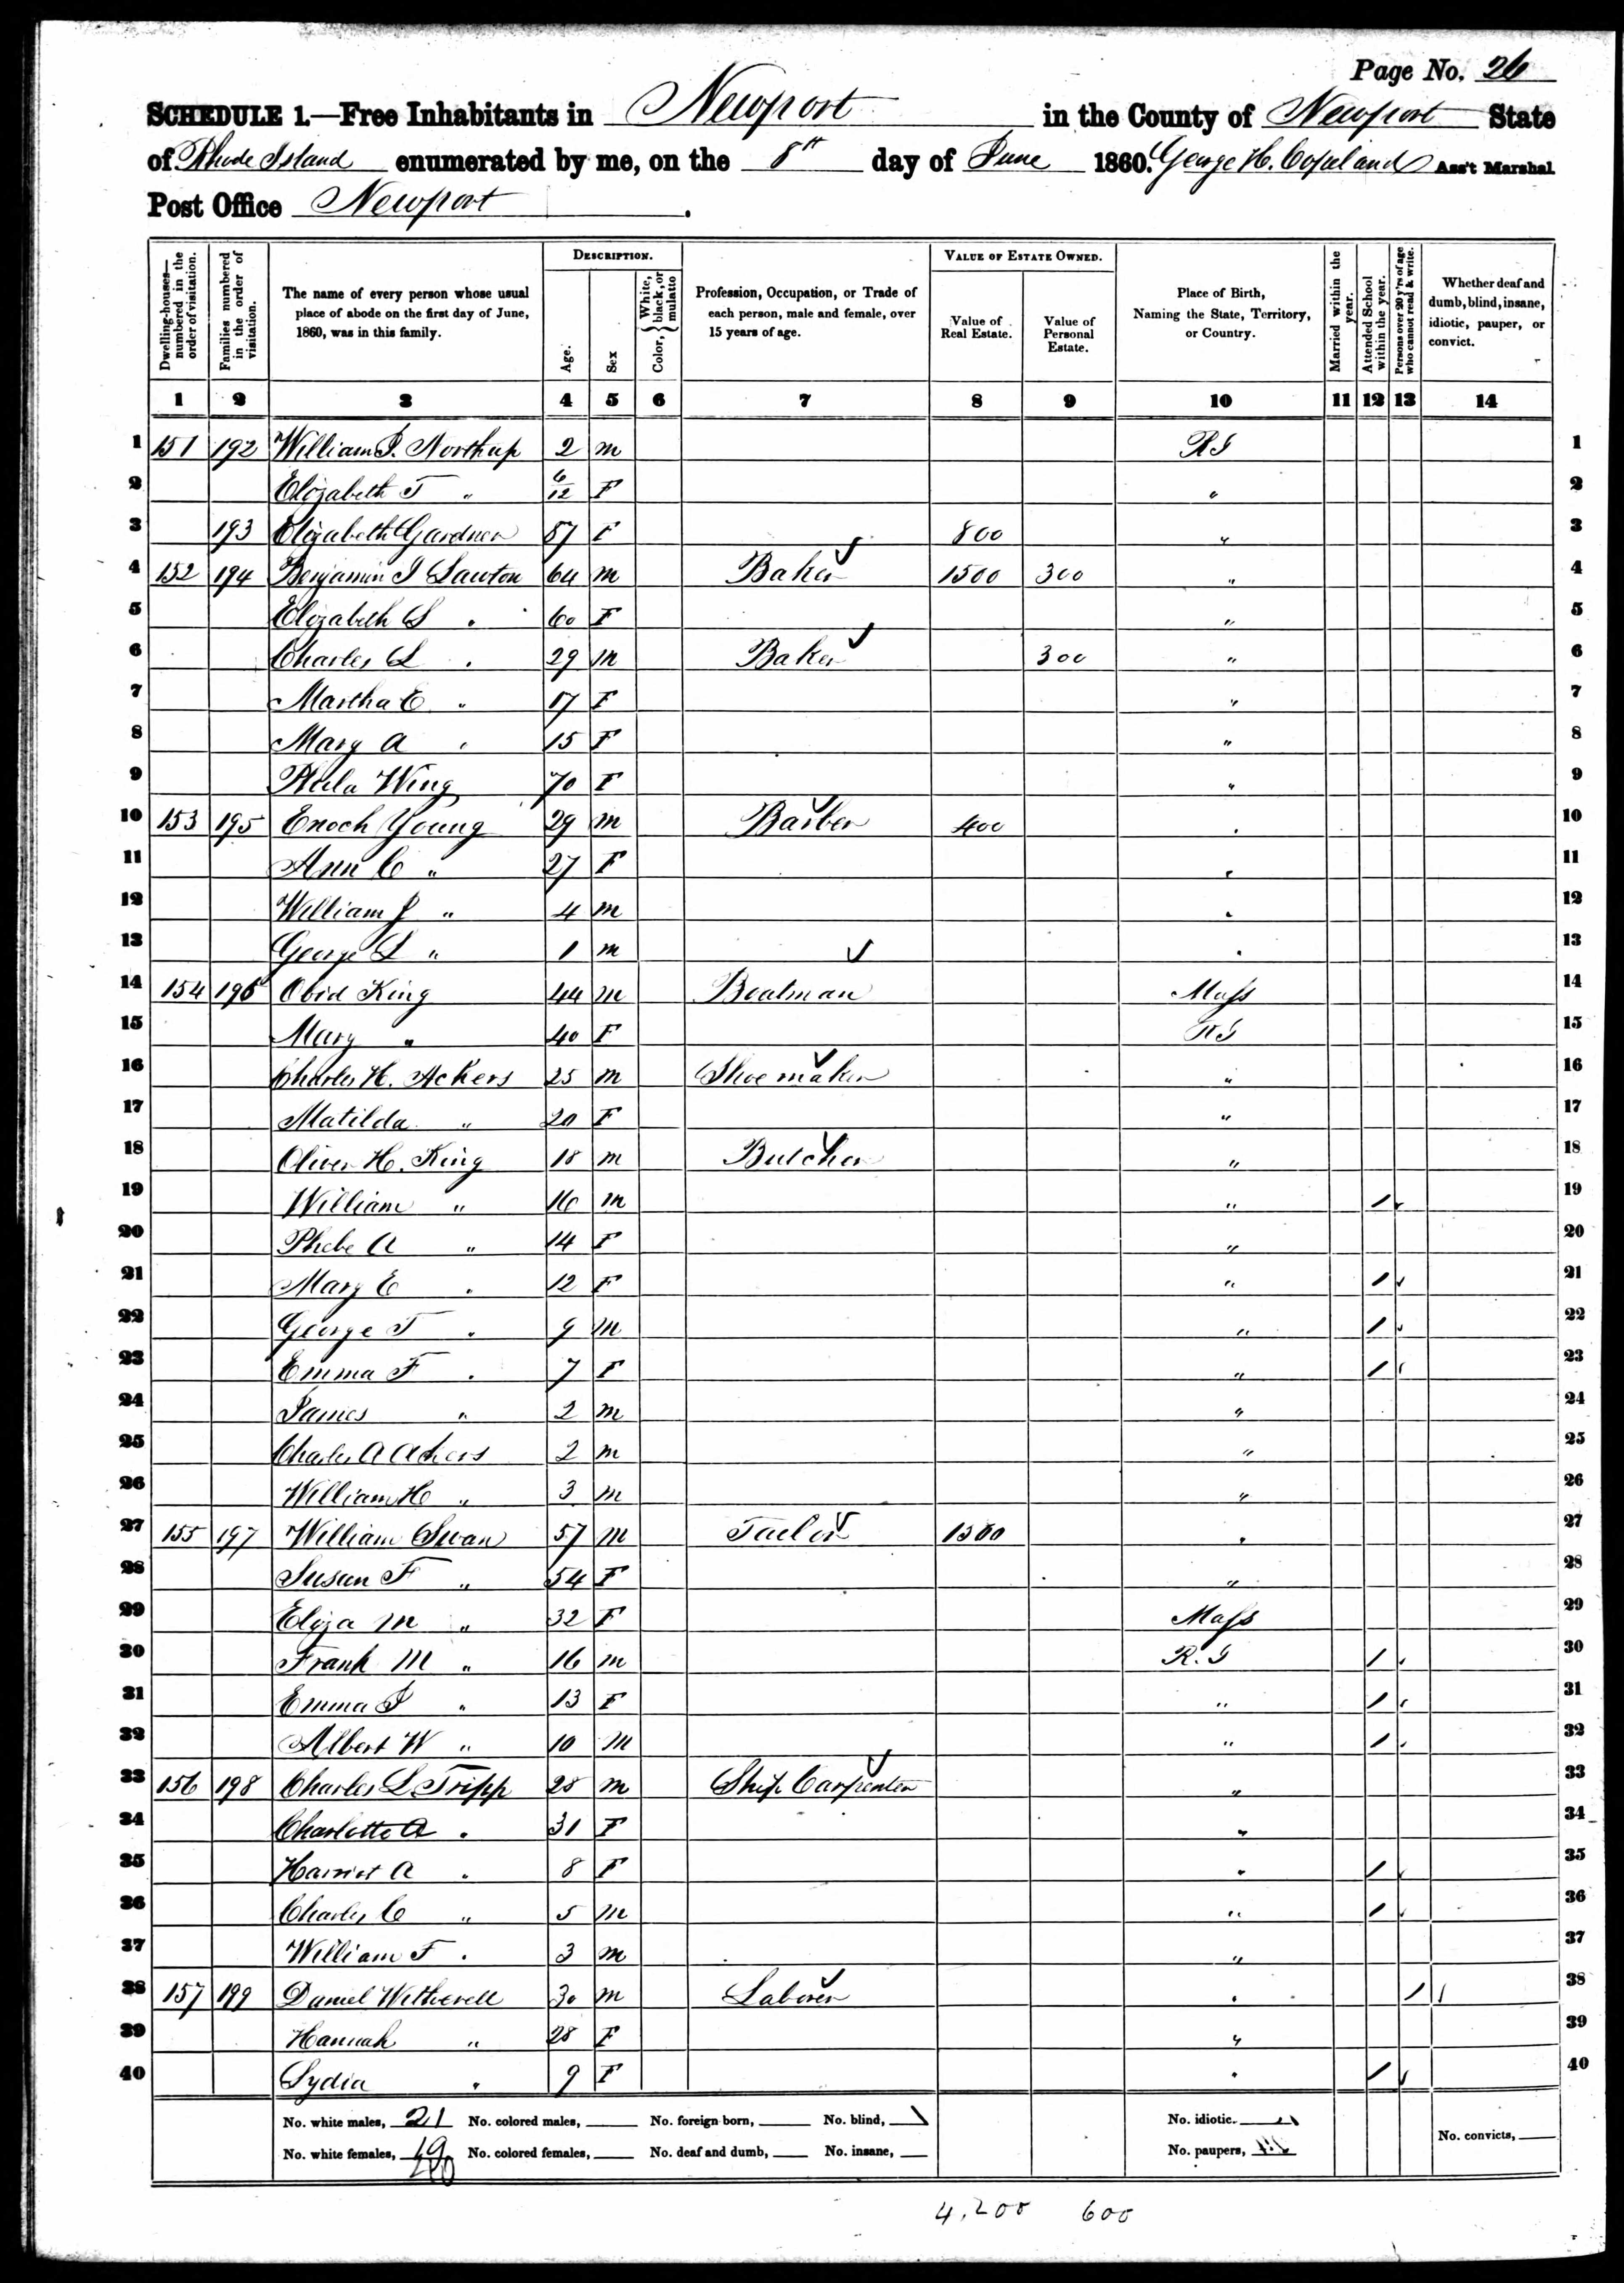 Page No. 26
SCHEDULE 1.—Free Inhabitants in Newport in the County of Newport State
of Rhode Island enumerated by me, on the 8th day of June 1860. George H. Copeland Ass't Marshal
Post Office Newport.
Dwelling-houses—numbered in the order of visitation.
Families numbered in the order of visitation.
The name of every person whose usual place of abode on the first day of June, 1860, was in this family.
DESCRIPTION.
Age.
Sex
Color, { White, black, or mulatto
Profession, Occupation, or Trade of each person, male and female, over 15 years of age.
VALUE OF ESTATE OWNED.
Value of Real Estate.
Value of Personal Estate.
Place of Birth, Naming the State, Territory, or Country.
Married within the year.
Attended School within the year.
Persons over 20 y'rs of age who cannot read & write.
Whether deaf and dumb, blind, insane, idiotic, pauper, or convict.
1 2 3 4 5 6 7 8 9 10 11 12 13 14
1 151 192 William J. Northup 2 m RI 1
2 Elizabeth T " 6/12 F " 2
3 193 Elizabeth Gardner 87 F 800 " 3
4 152 194 Benjamin J Lawton 64 m Baker 1500 300 " 4
5 Elizabeth S " 60 F " 5
6 Charles L " 29 m Baker 300 " 6
7 Martha E " 17 F " 7
8 Mary A " 15 F " 8
9 Wing 70 F " 9
10 153 195 Enoch Young 29 m Barber 400 " 10
11 Ann C " 27 F " 11
12 William J " 4 m " 12
13 George L " 1 m " 13
14 154 196 Obid King 44 m Boatman Mass 14
15 Mary " 40 F RI 15
16 Charles H. Ackers 25 m Shoemaker " 16
17 Matilda " 20 F " 17
18 Oliver H. King 18 m Butcher " 18
19 William " 16 m " / 19
20 Phebe A " 14 F " 20
21 Mary E " 12 F " / 21
22 George T " 9 m " / 22
23 Emma F " 7 F " / 23
24 James " 2 m " 24
25 Charles A Ackers 2 m " 25
26 William H " 3 m " 26
27 155 197 William Swan 57 m Tailor 1500 " 27
28 Susan F " 54 F " 28
29 Eliza M " 32 F Mass 29
30 Frank M " 16 m R.I / 30
31 Emma J " 13 F " / 31
32 Albert W " 10 m " / 32
33 156 198 Charles L Tripp 28 m Ship Carpenter " 33
34 Charlotte A " 31 F " 34
35 Harriet A " 8 F " / 35
36 Charles C " 5 m " / 36
37 William F " 3 m " 37
38 157 199 Daniel Witherell 30 m Laborer " / 38
39 Hannah " 28 F " 39
40 Lydia " 9 F " / 40
No. white males, 21 No. colored males, No. foreign born, No. blind, No. idiotic.
No. white females, 19 No. colored females, No. deaf and dumb, No. insane, No. paupers, No. convicts,
40
4,200 600